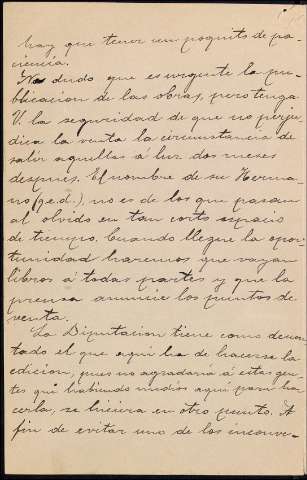 hay que tener un poquito de pa-
ciencia.
No dudo que es urgente la pu-
blicacion de las obras, pero tenga
V. la seguridad de que no perju-
dica la venta la circunstancia de
salir aquellas á luz dos meses
despues. El nombre de su Herma-
no (q.e.d.), no es de los que pasan
al olvido en tan corto espacio
de tiempo. Cuando llegue la opor-
tunidad haremos que vayan
libros á todas partes y que la
prensa anuncie los puntos de
venta.
La Diputacion tiene como descon-
tado el que aquí ha de hacerse la
edicion, pues no agradaria á estas gen-
tes que habiendo medios aquí para ha-
cerla, se hiciera en otro punto. A
fin de evitar uno de los inconve-